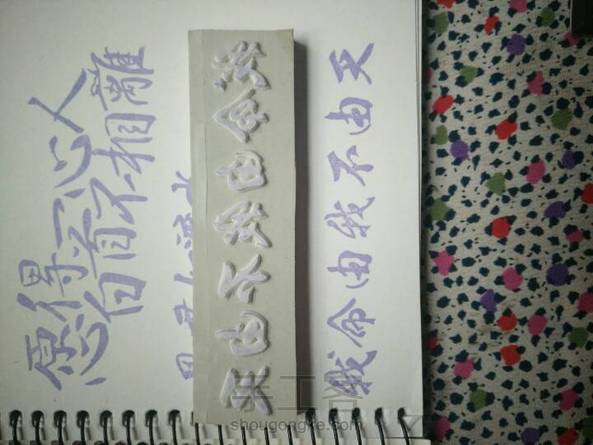 愿得一心人
白首不相離
我命由我不由天
我命由我不由天
手工客
shougongke.com